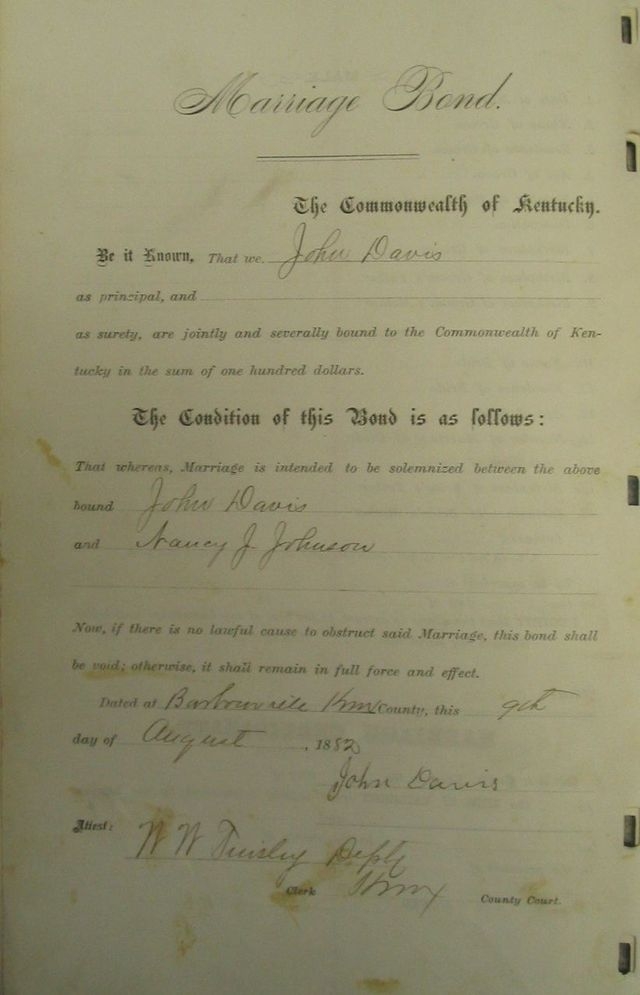 Marriage Bond.
The Commonwealth of Kentucky.
Be it Known, That we, John Davis
as principal, and
as surety, are jointly and severally bound to the Commonwealth of Ken-
tucky in the sum of one hundred dollars.
The Condition of this Bond is as follows:
That whereas, Marriage is intended to be solemnized between the above
bound John Davis
and Nancy J Johnson
Now, if there is no lawful cause to obstruct said Marriage, this bond shall
be void; otherwise, it shall remain in full force and effect.
Dated at Barbourville Knox County, this 9th
day of August, 1882
John Davis
Attest:
W W Tinsley Depty
Clerk Knox County Court.